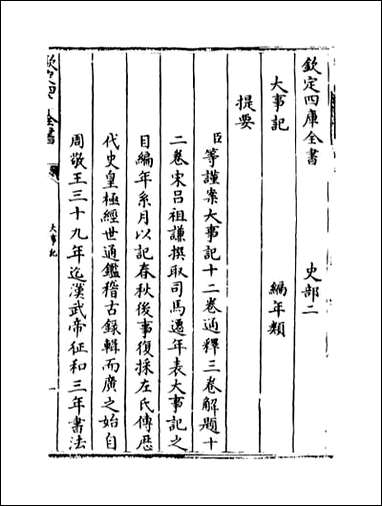 欽定四庫全書 史部二
大事記 編年類
提要
臣等謹案大事記十二卷通釋三卷解題十
二卷宋吕祖謙撰取司馬遷年表大事記之
目編年系月以記春秋後事復採左氏傳歴
代史皇極經世通鑑稽古録輯而廣之始自
周敬王三十九年迄漢武帝征和三年書法
大事記